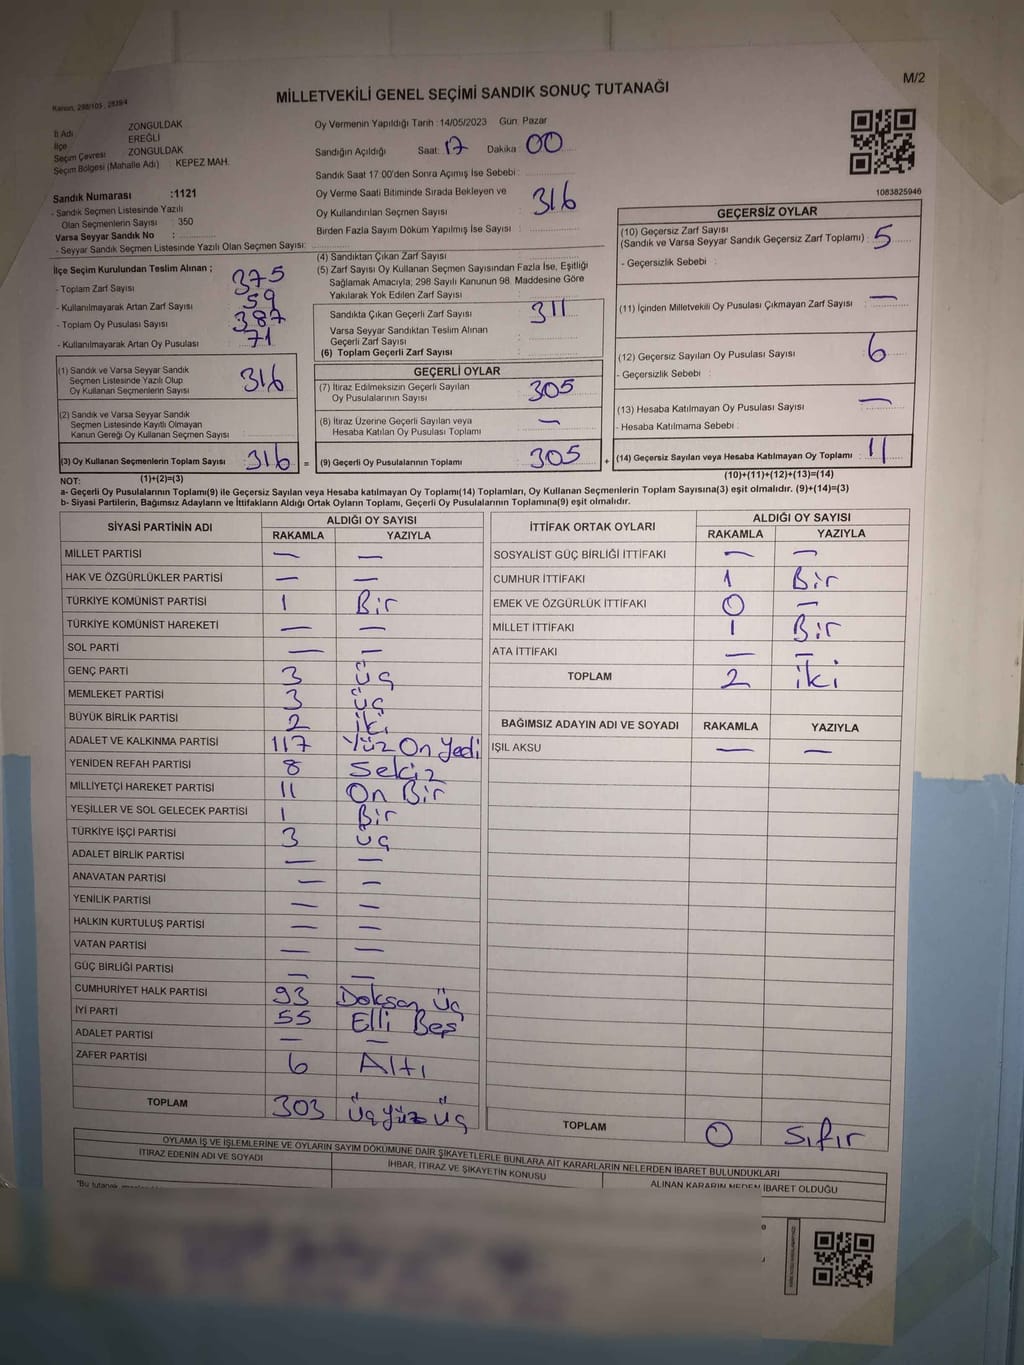 M/2
Kanun, 298/105, 2839/4
MİLLETVEKİLİ GENEL SEÇİMİ SANDIK SONUÇ TUTANAĞI
İl Adı : ZONGULDAK
İlçe : EREĞLİ
Seçim Çevresi : ZONGULDAK
Seçim Bölgesi (Mahalle Adı) : KEPEZ MAH.
Sandık Numarası :1121
- Sandık Seçmen Listesinde Yazılı
Olan Seçmenlerin Sayısı : 350
Varsa Seyyar Sandık No :
- Seyyar Sandık Seçmen Listesinde Yazılı Olan Seçmen Sayısı:
Oy Vermenin Yapıldığı Tarih :14/05/2023 Gün: Pazar
Sandığın Açıldığı Saat: 17 Dakika 00
Sandık Saat 17:00'den Sonra Açımış İse Sebebi :
Oy Verme Saati Bitiminde Sırada Bekleyen ve
Oy Kullandırılan Seçmen Sayısı : 316
Birden Fazla Sayım Döküm Yapılmış İse Sayısı :
1083825946
İlçe Seçim Kurulundan Teslim Alınan ;
- Toplam Zarf Sayısı : 375
- Kullanılmayarak Artan Zarf Sayısı : 59
- Toplam Oy Pusulası Sayısı : 387
- Kullanılmayarak Artan Oy Pusulası : 71
(1) Sandık ve Varsa Seyyar Sandık
Seçmen Listesinde Yazılı Olup
Oy Kullanan Seçmenlerin Sayısı 316
(2) Sandık ve Varsa Seyyar Sandık
Seçmen Listesinde Kayıtlı Olmayan
Kanun Gereği Oy Kullanan Seçmen Sayısı
(3) Oy Kullanan Seçmenlerin Toplam Sayısı 316 =
(1)+(2)=(3)
(4) Sandıktan Çıkan Zarf Sayısı :
(5) Zarf Sayısı Oy Kullanan Seçmen Sayısından Fazla İse, Eşitliği
Sağlamak Amacıyla; 298 Sayılı Kanunun 98. Maddesine Göre
Yakılarak Yok Edilen Zarf Sayısı :
Sandıkta Çıkan Geçerli Zarf Sayısı : 311
Varsa Seyyar Sandıktan Teslim Alınan
Geçerli Zarf Sayısı :
(6) Toplam Geçerli Zarf Sayısı :
GEÇERLİ OYLAR
(7) İtiraz Edilmeksizin Geçerli Sayılan
Oy Pusulalarının Sayısı : 305
(8) İtiraz Üzerine Geçerli Sayılan veya
Hesaba Katılan Oy Pusulası Toplamı : —
(9) Geçerli Oy Pusulalarının Toplamı : 305 +
GEÇERSİZ OYLAR
(10) Geçersiz Zarf Sayısı
(Sandık ve Varsa Seyyar Sandık Geçersiz Zarf Toplamı) : 5
- Geçersizlik Sebebi :
(11) İçinden Milletvekili Oy Pusulası Çıkmayan Zarf Sayısı : —
(12) Geçersiz Sayılan Oy Pusulası Sayısı : 6
- Geçersizlik Sebebi :
(13) Hesaba Katılmayan Oy Pusulası Sayısı : —
- Hesaba Katılmama Sebebi :
(14) Geçersiz Sayılan veya Hesaba Katılmayan Oy Toplamı : 11
(10)+(11)+(12)+(13)=(14)
NOT:
a- Geçerli Oy Pusulalarının Toplamı(9) ile Geçersiz Sayılan veya Hesaba katılmayan Oy Toplamı(14) Toplamları, Oy Kullanan Seçmenlerin Toplam Sayısına(3) eşit olmalıdır. (9)+(14)=(3)
b- Siyasi Partilerin, Bağımsız Adayların ve İttifakların Aldığı Ortak Oyların Toplamı, Geçerli Oy Pusulalarının Toplamına(9) eşit olmalıdır.
SİYASİ PARTİNİN ADI ALDIĞI OY SAYISI
RAKAMLA YAZIYLA
MİLLET PARTİSİ — —
HAK VE ÖZGÜRLÜKLER PARTİSİ — —
TÜRKİYE KOMÜNİST PARTİSİ 1 Bir
TÜRKİYE KOMÜNİST HAREKETİ — —
SOL PARTİ — —
GENÇ PARTİ 3 Üç
MEMLEKET PARTİSİ 3 Üç
BÜYÜK BİRLİK PARTİSİ 2 İki
ADALET VE KALKINMA PARTİSİ 117 Yüz On Yedi
YENİDEN REFAH PARTİSİ 8 Sekiz
MİLLİYETÇİ HAREKET PARTİSİ 11 On Bir
YEŞİLLER VE SOL GELECEK PARTİSİ 1 Bir
TÜRKİYE İŞÇİ PARTİSİ 3 Üç
ADALET BİRLİK PARTİSİ — —
ANAVATAN PARTİSİ — —
YENİLİK PARTİSİ — —
HALKIN KURTULUŞ PARTİSİ — —
VATAN PARTİSİ — —
GÜÇ BİRLİĞİ PARTİSİ — —
CUMHURİYET HALK PARTİSİ 93 Doksan Üç
İYİ PARTİ 55 Elli Beş
ADALET PARTİSİ — —
ZAFER PARTİSİ 6 Altı
TOPLAM 303 Üçyüz Üç
İTTİFAK ORTAK OYLARI ALDIĞI OY SAYISI
RAKAMLA YAZIYLA
SOSYALİST GÜÇ BİRLİĞİ İTTİFAKI — —
CUMHUR İTTİFAKI 1 Bir
EMEK VE ÖZGÜRLÜK İTTİFAKI 0 —
MİLLET İTTİFAKI 1 Bir
ATA İTTİFAKI — —
TOPLAM 2 İki
BAĞIMSIZ ADAYIN ADI VE SOYADI RAKAMLA YAZIYLA
IŞIL AKSU — —
TOPLAM 0 Sıfır
OYLAMA İŞ VE İŞLEMLERİNE VE OYLARIN SAYIM DÖKÜMÜNE DAİR ŞİKAYETLERLE BUNLARA AİT KARARLARIN NELERDEN İBARET BULUNDUKLARI
İTİRAZ EDENİN ADI VE SOYADI İHBAR, İTİRAZ VE ŞİKAYETİN KONUSU ALINAN KARARIN NEDEN İBARET OLDUĞU
"Bu tutanak